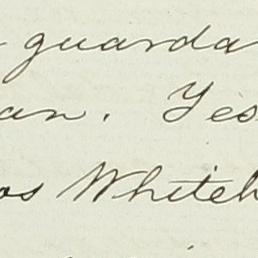 guarda
an. Yes
os Whiteh